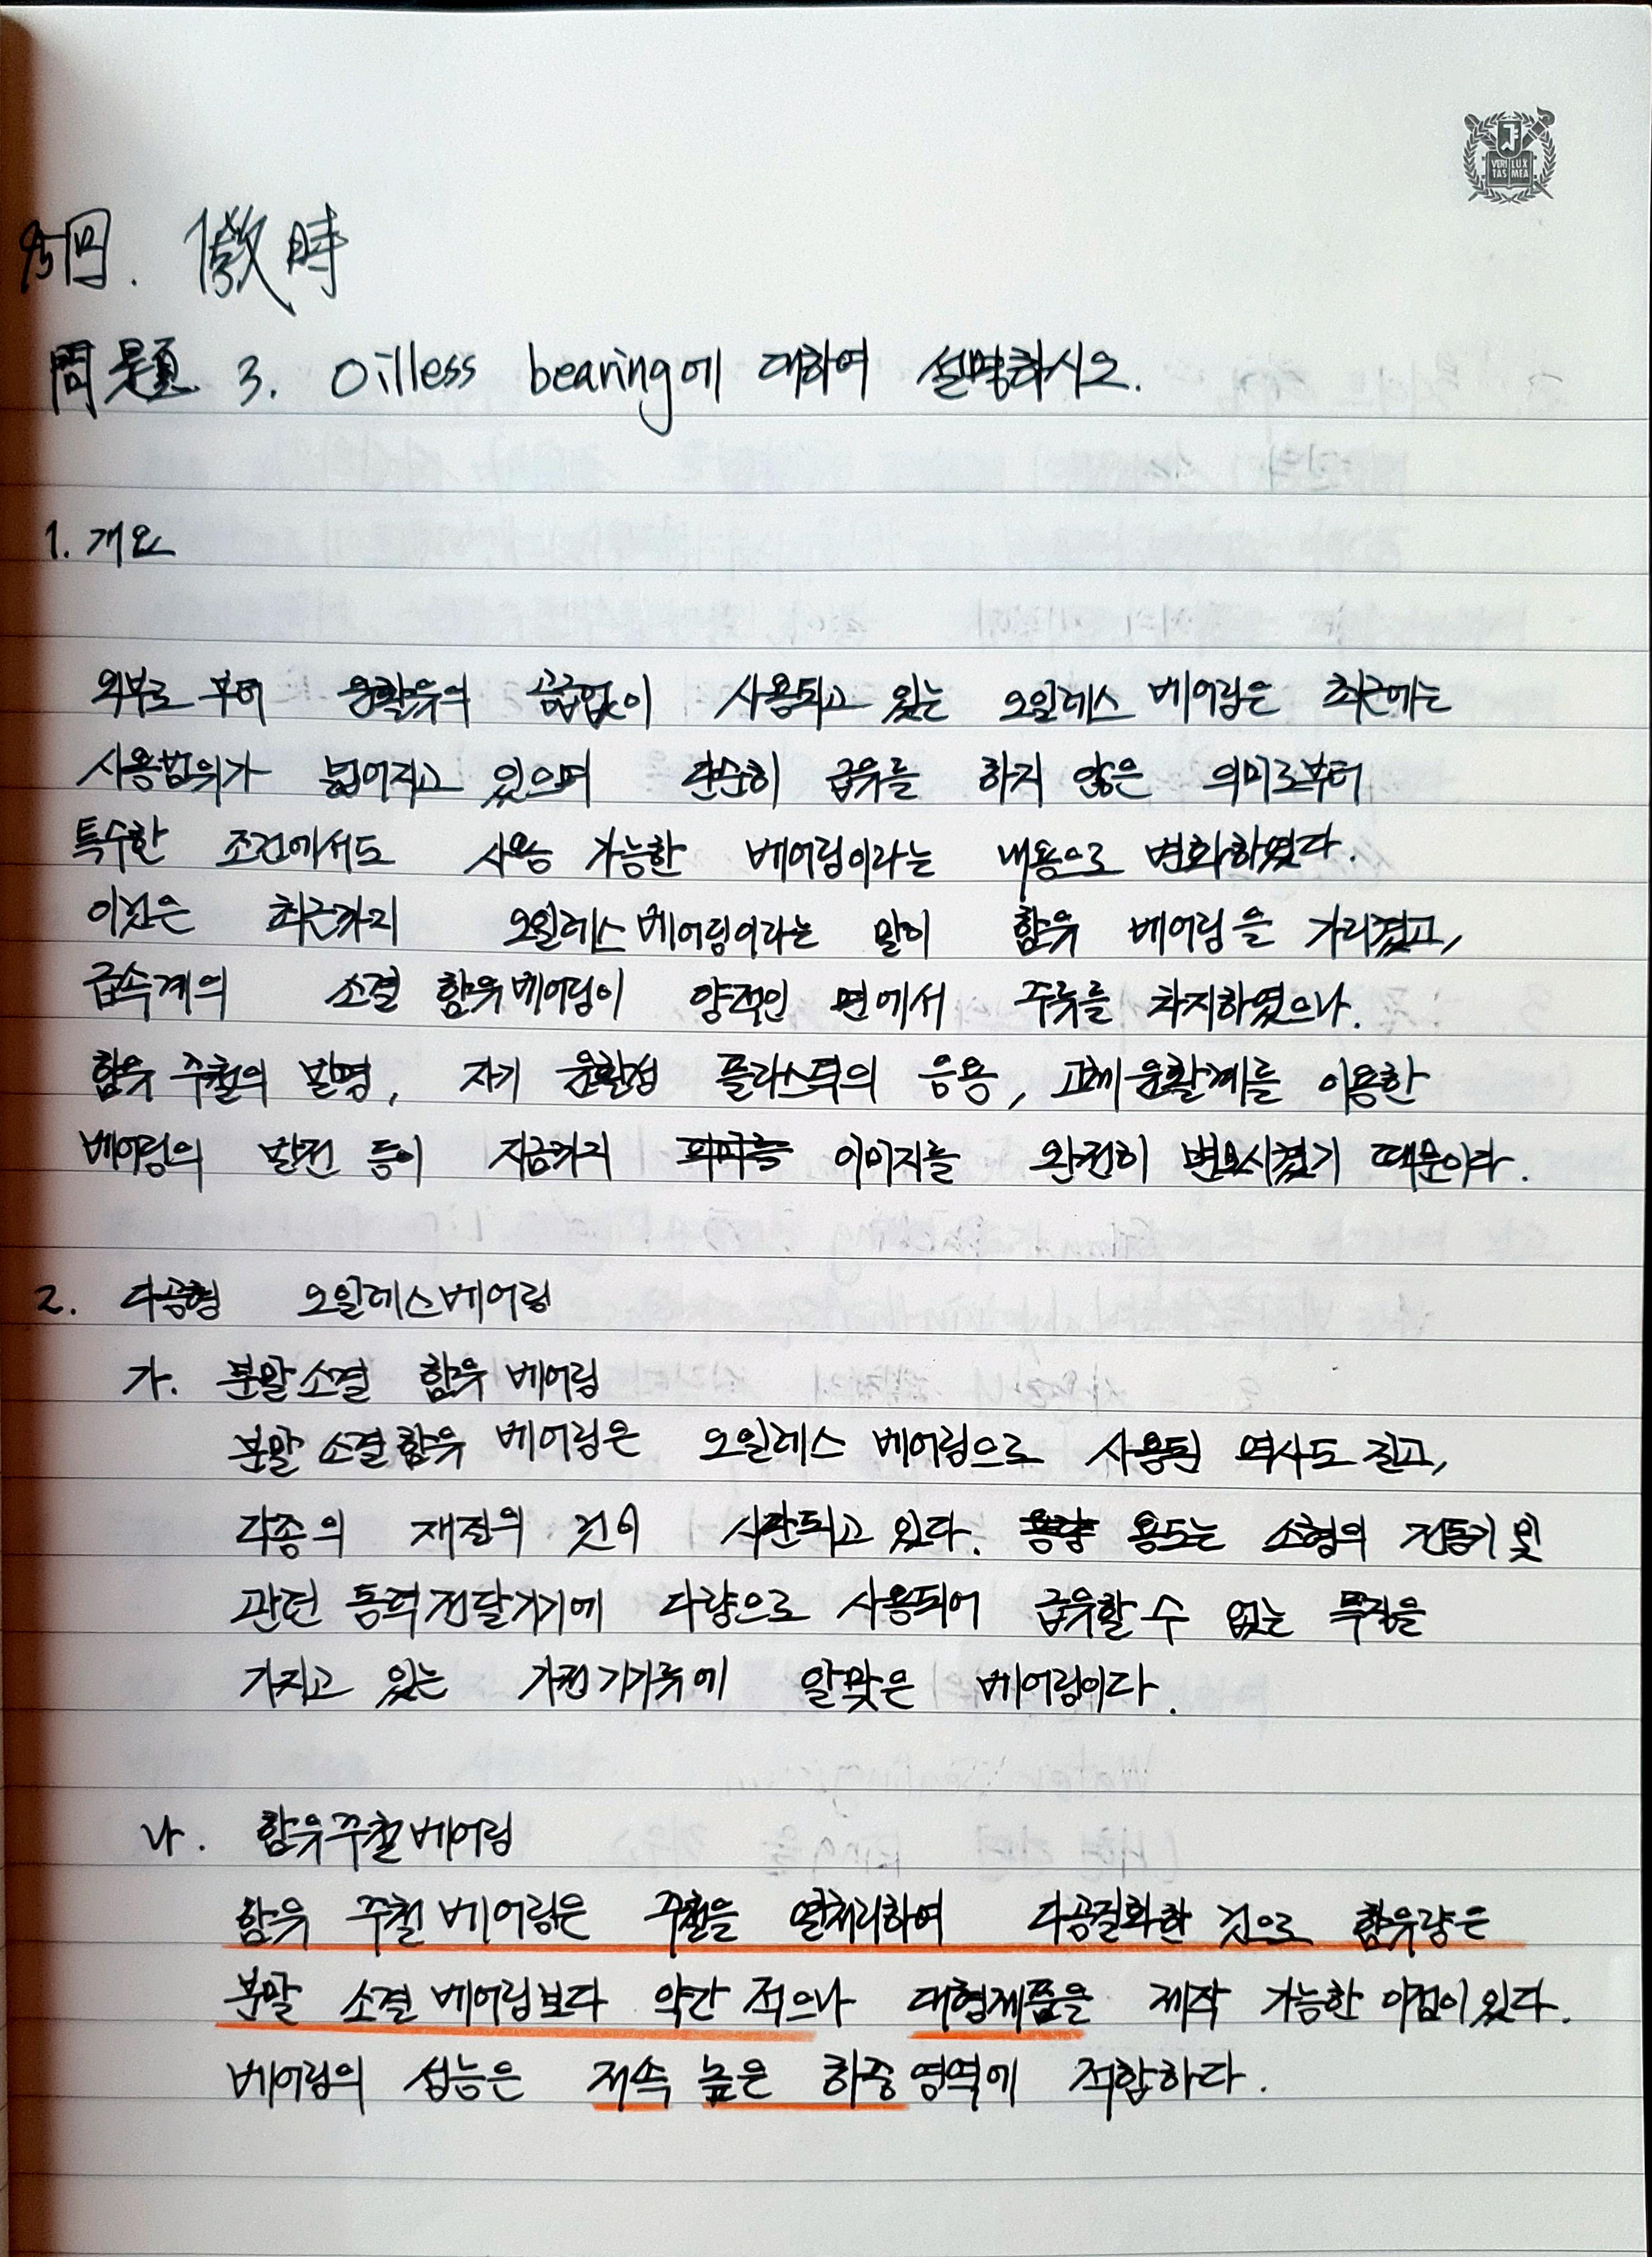 VERI LUX
TAS MEA
時
問題 3. Oilless bearing에 대하여 설명하시오.
1. 개요
외부로 부터 윤활유의 공급없이 사용되고 있는 오일레스 베어링은 최근에는
사용범위가 넓어지고 있으며 단순히 급유를 하지 않은 의미로부터
특수한 조건에서도 사용 가능한 베어링이라는 내용으로 변화하였다.
이것은 최근까지 오일레스 베어링이라는 말이 함유 베어링을 가리켰고,
금속계의 소결 함유 베어링이 양적인 면에서 주류를 차지하였으나.
함유 주철의 발명, 자기 윤활성 플라스틱의 응용, 고체윤활제를 이용한
베어링의 발전 등이 지금까지 이미지를 완전히 변모시켰기 때문이다.
2. 다공형 오일레스베어링
가. 분말소결 함유 베어링
분말 소결함유 베어링은 오일레스 베어링으로 사용된 역사도 길고,
각종의 재질의 것이 시판되고 있다. 용도는 소형의 전동기 및
관련 동력전달기기에 다량으로 사용되어 급유할 수 없는 특징을
가지고 있는 가전기기류에 알맞은 베어링이다.
나. 함유주철베어링
함유 주철 베어링은 주철을 열처리하여 다공질화한 것으로 함유량은
분말 소결 베어링보다 약간 적으나 대형제품을 제작 가능한 이점이 있다.
베어링의 성능은 저속 높은 하중 영역에 적합하다.